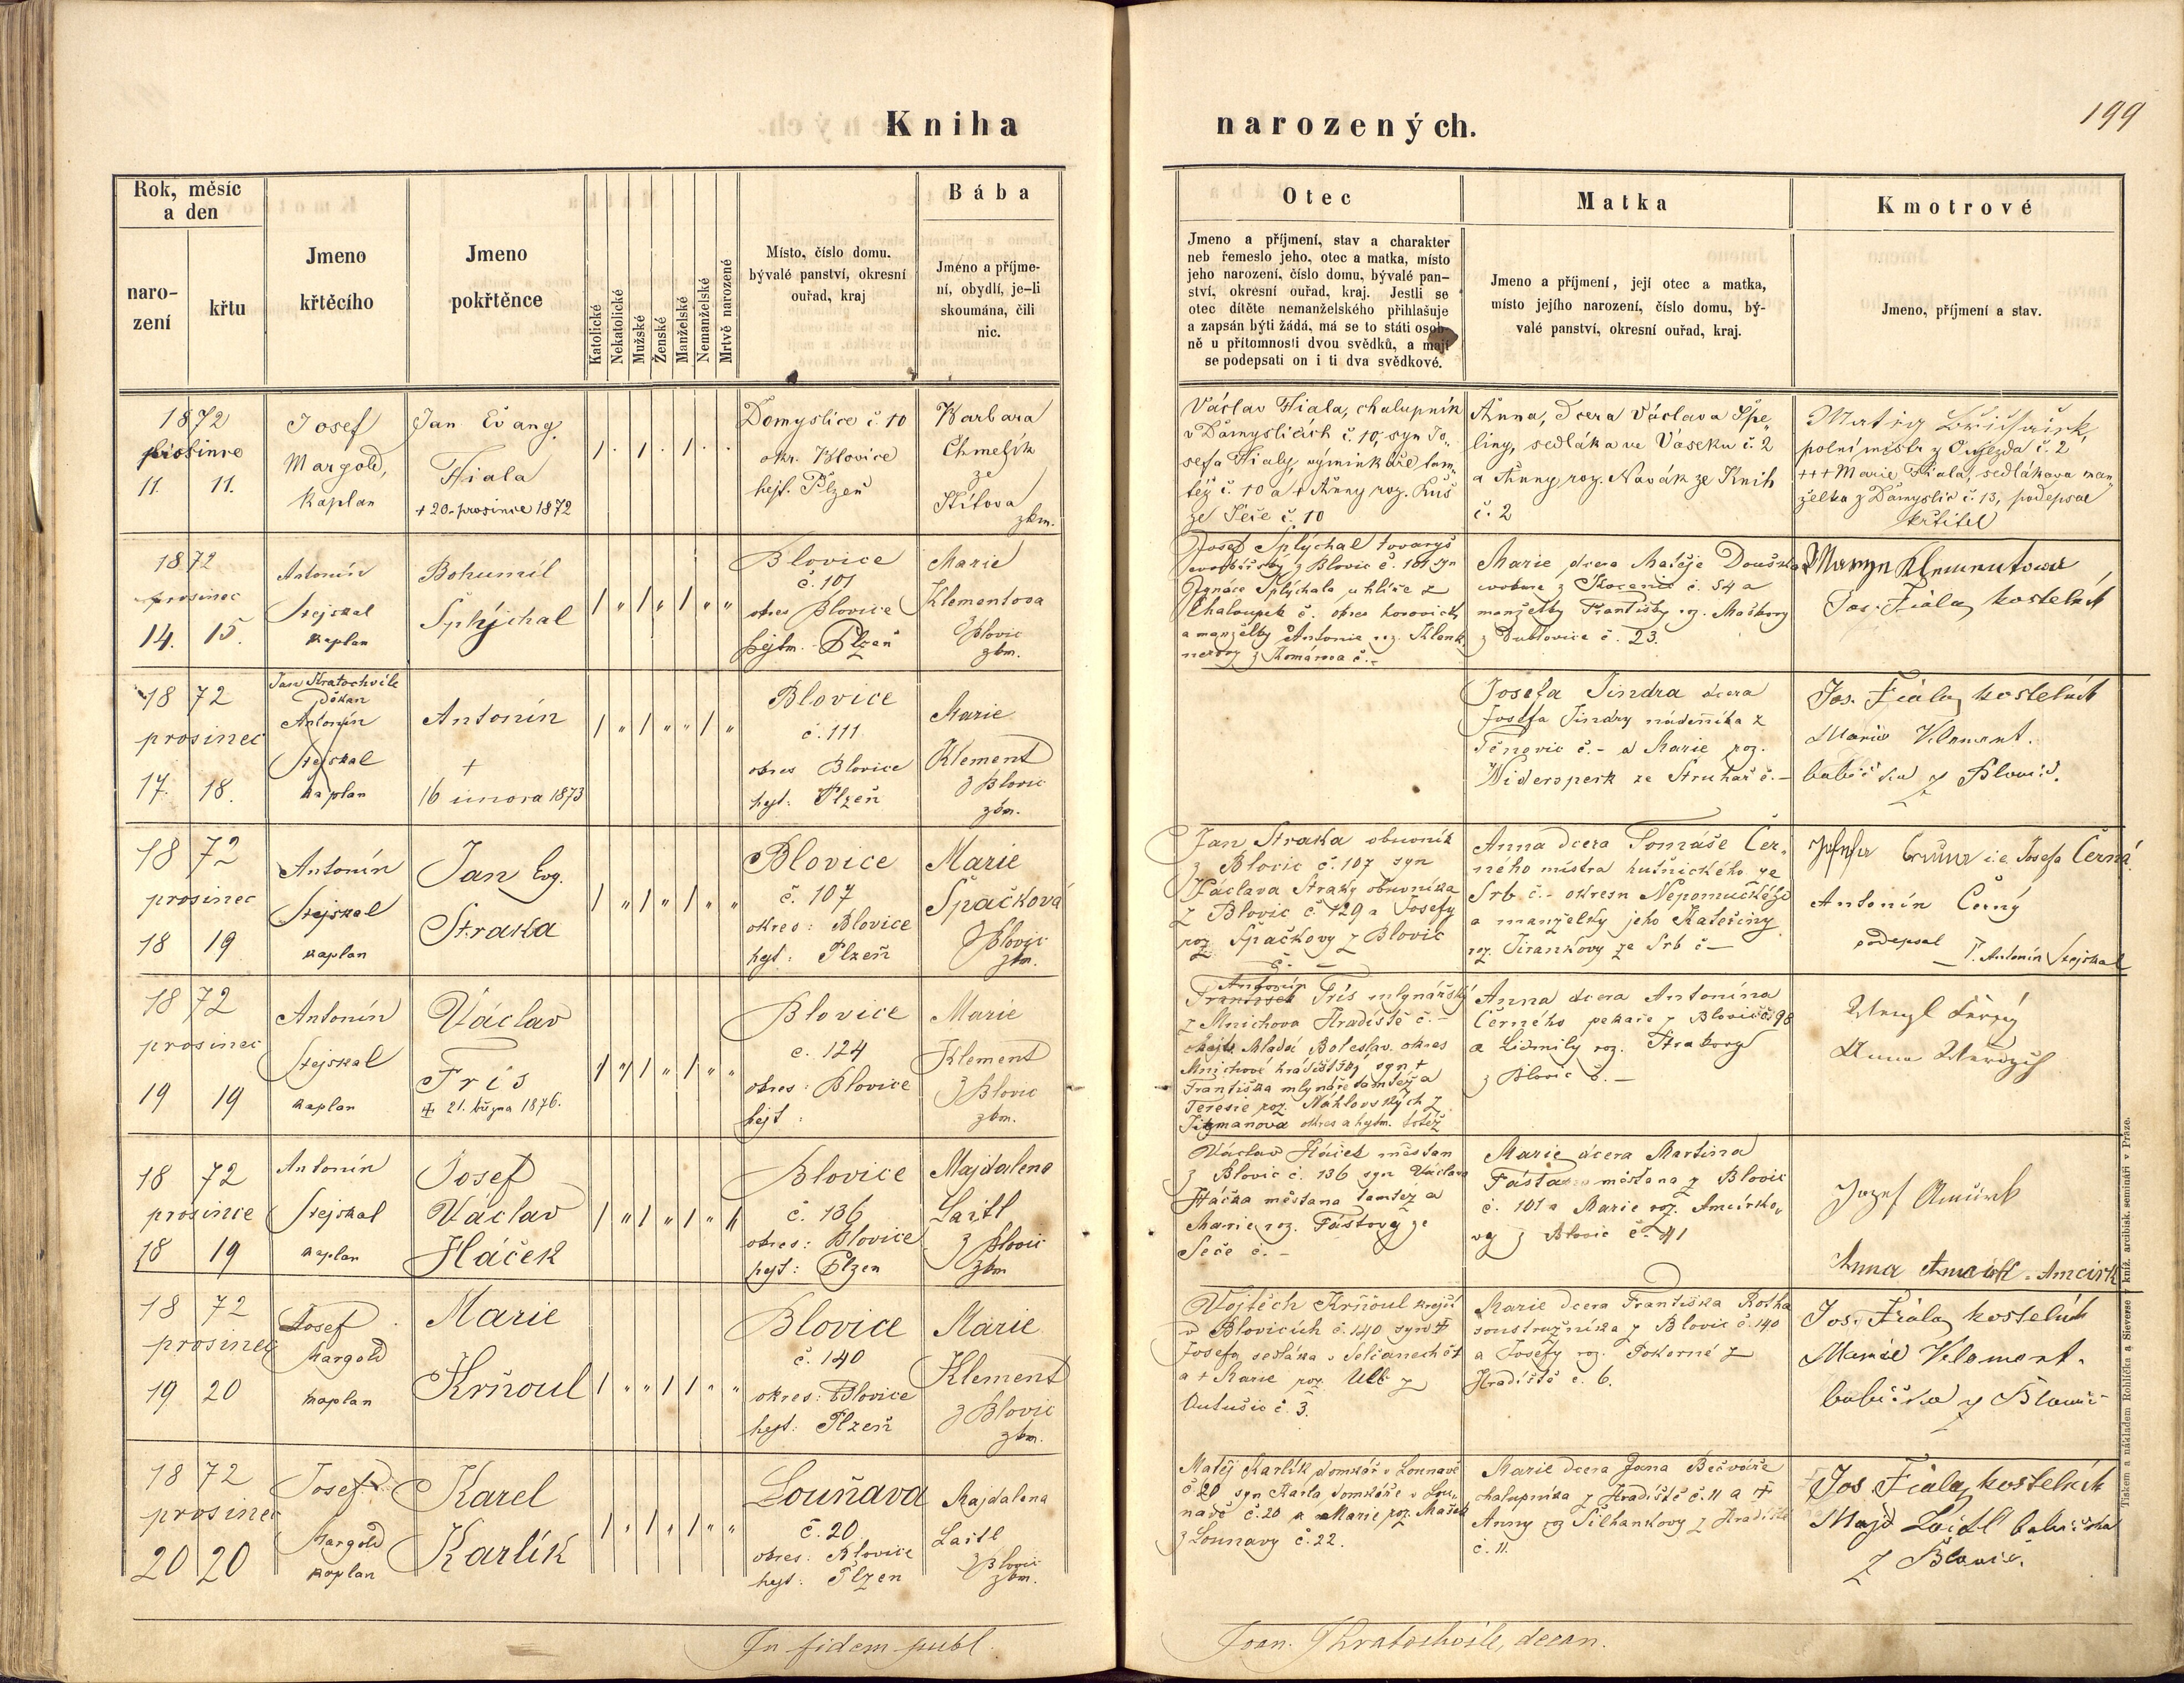 Kniha narozených.
199
Rok, měsíc
a den
naro-
zení
křtu
Jmeno
křtěcího
Jmeno
pokřtěnce
Katolické
Nekatolické
Mužské
Ženské
Manželské
Nemanželské
Mrtvě narozené
Místo, číslo domu.
bývalé panství, okresní
ouřad, kraj
Bába
Jméno a příjme-
ní, obydlí, je-li
skoumána, čili
nic.
Otec
Jmeno a příjmení, stav a charakter
neb řemeslo jeho, otec a matka, místo
jeho narození, číslo domu, bývalé pan-
ství, okresní ouřad, kraj. Jestli se
otec dítěte nemanželského přihlašuje
a zapsán býti žádá, má se to státi osob-
ně u přítomnosti dvou svědků, a mají
se podepsati on i ti dva svědkové.
Matka
Jmeno a příjmení, její otec a matka,
místo jejího narození, číslo domu, bý-
valé panství, okresní ouřad, kraj.
Kmotrové
Jmeno, příjmení a stav.
1872
prosince
11. 11.
Josef
Margold,
Kaplan
Jan Evang.
Fiala
+ 20. prosince 1872
Domyslice č. 10
okr. Blovice
hejt. Plzeň
Barbara
Chmelík
ze
Štítova
zkm.
Václav Fiala, chalupník
v Domyslicích č. 10, syn Jo-
sefa Fialy, výminkáře tam-
též č. 10 a + Anny roz. Kuš
ze Seče č. 10
Anna, dcera Václava Špe-
liny, sedláka ve Vaseku č. 2
a Anny roz. Novák ze Knih
č. 2
polní mistr z Oujezda č. 2
+++ Marie Fiala, sedlákova man-
želka z Domyslic č. 13, podepsal
křtitel
1872
prosinec
14. 15.
Antonín
Stejskal
kaplan
Bohumil
Šplýchal
Blovice
č. 101
okres Blovice
hejtm. Plzeň
Marie
Klementova
z Blovic
zkm.
Josef Šplýchal tovaryš
z Blovic č. 101 syn
Ignáce Šplýchala uhlíře z
Chaloupek č. okres horovický
a manželky Antonie roz. Klenk
z Komárova č. -
Marie dcera Matěje Douška
z Kocenic č. 54 a
manželky Františky roz. Maškovy
z Bukovice č. 23.
Maryn Klementowa
Jos. Fiala, kostelník
1872
prosinec
17. 18.
Jan Kratochvíle
děkan
Antonín
Stejskal
kaplan
Antonín
+
16 února 1873
Blovice
č. 111
okres Blovice
hejt: Plzeň
Marie
Klement
z Blovic
zkm.
Josefa Jindra dcera
Josefa Jindry nádeníka z
Těnovic č. - a Marie roz.
Widersperk ze Struhař č. -
Jos. Fiala, kostelník
Marie Klement.
babička z Blovic.
1872
prosinec
18 19
Antonín
Stejskal
kaplan
Jan Evg.
Straka
Blovice
č. 107
okres: Blovice
hejt: Plzeň
Marie
Špačková
z Blovic
zkm.
Jan Straka obuvník
z Blovic č. 107 syn
Václava Straky obuvníka
z Blovic č. 129 a Josefy
roz. Špačkovy z Blovic
č. -
Anna dcera Tomáše Čer-
ného mistra kušnického ze
Srb č. - okresu Nepomuckého
a manželky jeho Kateřiny
roz. Jirankovy ze Srb č -
i.e. Josefa Černá
Antonín Černý
podepsal
P. Antonín Stejskal
1872
prosinec
19 19
Antonín
Stejskal
kaplan
Václav
Fris
+ 21. března 1876.
Blovice
č. 124
okres: Blovice
hejt:
Marie
Klement
z Blovic
zkm.
Antonín
František Fris mlynářský
z Mnichova Hradiště č. -
hejt. Mladá Boleslav. okres
Mnichově hradištský syn +
Františka mlynáře tamtéž a
Teresie roz. Náhlovských z
Zigmanova okres a hejtm. totéž
Anna dcera Antonína
Černého pekaře z Blovic č. 98
a Lidmily roz. Strakovy
z Blovic č. -
1872
prosince
18 19
Antonín
Stejskal
kaplan
Josef
Václav
Háček
Blovice
č. 136
okres: Blovice
hejt: Plzen
Majdalena
Laitl
z Blovic
zkm
Václav Háček měšťan
z Blovic č. 136 syn Václava
Háčka měšťana tamtéž a
Marie roz. Fástovy ze
Seče č. -
Marie dcera Martina
Fásta měšťana z Blovic
č. 101 a Marie roz. Amcírko-
vy z Blovic č. 41
Anna Amcirk
1872
prosinec
19 20
Josef
Margold
kaplan
Marie
Krňoul
Blovice
č. 140
okres: Blovice
hejt: Plzeň
Marie
Klement
z Blovic
zkm.
Vojtěch Krňoul krejčí
v Blovicích č. 140 syn +
Josefa sedláka v Sečanech č 7
a + Marie roz. Ulč z
Outušic č. 3.
Marie dcera Františka Rotha
soustružníka z Blovic č. 140
a Josefy roz. Pokorné z
Hradiště č. 6.
Jos. Fiala, kostelník
Marie Klement.
babička z Blovic
1872
prosinec
20 20
Josef
Margold
kaplan
Karel
Karlík
Louňava
č. 20
okres: Blovice
hejt: Plzen
Majdalena
Laitl
z Blovic
zkm.
Matěj Karlík domkář v Lounavě
č. 20 syn Karla domkáře v Lou-
navě č. 20 a Marie roz. Mašek
z Lounavy č. 22.
Marie dcera Jana Bečváře
chalupníka z Hradiště č. 11 a +
Anny roz Šilhankovy z Hradiště
č. 11.
Jos Fiala, kostelník
Majd Laitl babička
z Blovic.
In fidem publ.
Joan. Kratochvíle, decan.
Tiskem a nákladem Rohlíčka a Sieversa v kníž. arcibisk. semináři v Praze.